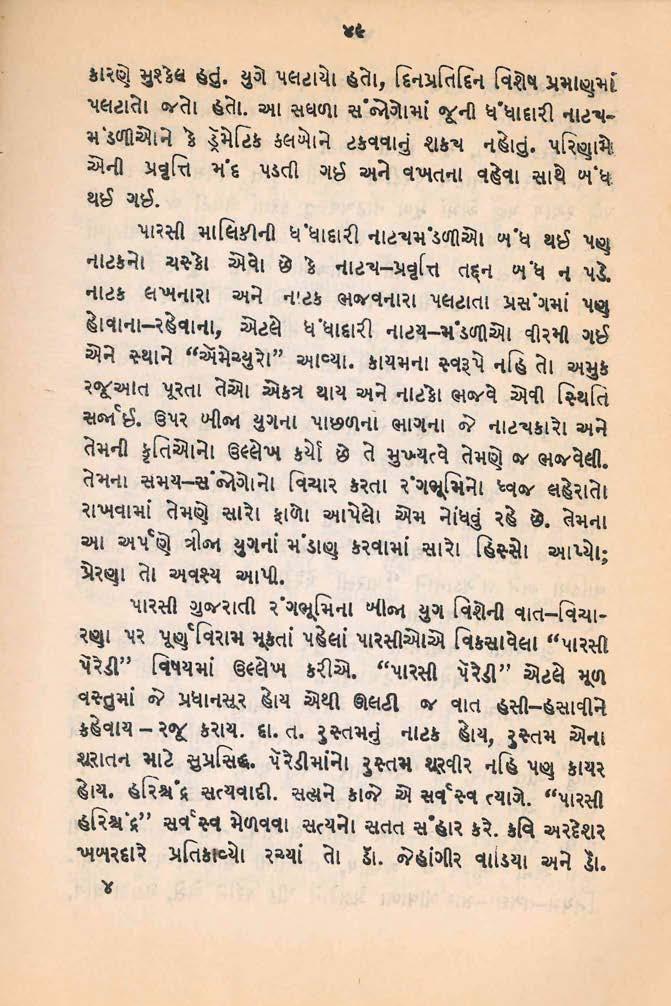 ૪૯
કારણે મુશ્કેલ હતું. યુગે પલટાયો હતો, દિનપ્રતિદિન વિશેષ પ્રમાણમાં
પલટાતો જતો હતો. આ સઘળા સંજોગોમાં જૂની ધંધાદારી નાટય-
મંડળીઓને કે ડ્રૅમેટિક કલબોને ટકવવાનું શકય નહોતું. પરિણામે
એની પ્રવૃત્તિ મંદ પડતી ગઈ અને વખતના વહેવા સાથે બંધ
થઈ ગઈ.
પારસી માલિકીની ધંધાદારી નાટયમંડળીઓ બંધ થઈ પણ
નાટકનો ચસ્કો એવો છે કે નાટય–પ્રવૃત્તિ તદ્દન બંધ ન પડે.
નાટક લખનારા અને નાટક ભજવનારા પલટાતા પ્રસંગમાં પણ
હોવાના–રહેવાના, એટલે ધંધાદારી નાટય–મંડળીઓ વીરમી ગઈ
એને સ્થાને “ઍમેચ્યુરો” આવ્યા. કાયમના સ્વરૂપે નહિ તો અમુક
રજૂઆત પૂરતા તેઓ એકત્ર થાય અને નાટકો ભજવે એવી સ્થિતિ
સર્જાઈ. ઉપર બીજા યુગના પાછળના ભાગના જે નાટયકારો અને
તેમની કૃતિઓનો ઉલ્લેખ કર્યો છે તે મુખ્યત્વે તેમણે જ ભજવેલી.
તેમના સમય–સંજોગોનો વિચાર કરતા રંગભૂમિનો ધ્વજ લહેરાતો
રાખવામાં તેમણે સારો ફાળો આપેલો એમ નોંધવું રહે છે. તેમના
આ અર્પણે ત્રીજા યુગનાં મંડાણ કરવામાં સારો હિસ્સો આપ્યો;
પ્રેરણા તો અવશ્ય આપી.
પારસી ગુજરાતી રંગભૂમિના બીજા યુગ વિશેની વાત–વિચા-
રણા પર પૂર્ણવિરામ મૂકતાં પહેલાં પારસીઓએ વિકસાવેલા “પારસી
પૅરૅડી” વિષયમાં ઉલ્લેખ કરીએ. “પારસી પૅરૅડી” એટલે મૂળ
વસ્તુમાં જે પ્રધાનસૂર હોય એથી ઊલટી જ વાત હસી–હસાવીને
કહેવાય – રજૂ કરાય. દા. ત. રુસ્તમનું નાટક હોય, રુસ્તમ એના
શૂરાતન માટે સુપ્રસિદ્ધ. પૅરૅડીમાંનો રુસ્તમ શૂરવીર નહિ પણ કાયર
હોય. હરિશ્ચંદ્ર સત્યવાદી. સત્યને કાજે એ સર્વસ્વ ત્યાગે. “પારસી
હરિશ્ચંદ્ર” સર્વસ્વ મેળવવા સત્યનો સતત સંહાર કરે. કવિ અરદેશર
ખબરદારે પ્રતિકાવ્યો રચ્યાં તો ડૉ. જેહાંગીર વાડિયા અને ડૉ.
૪